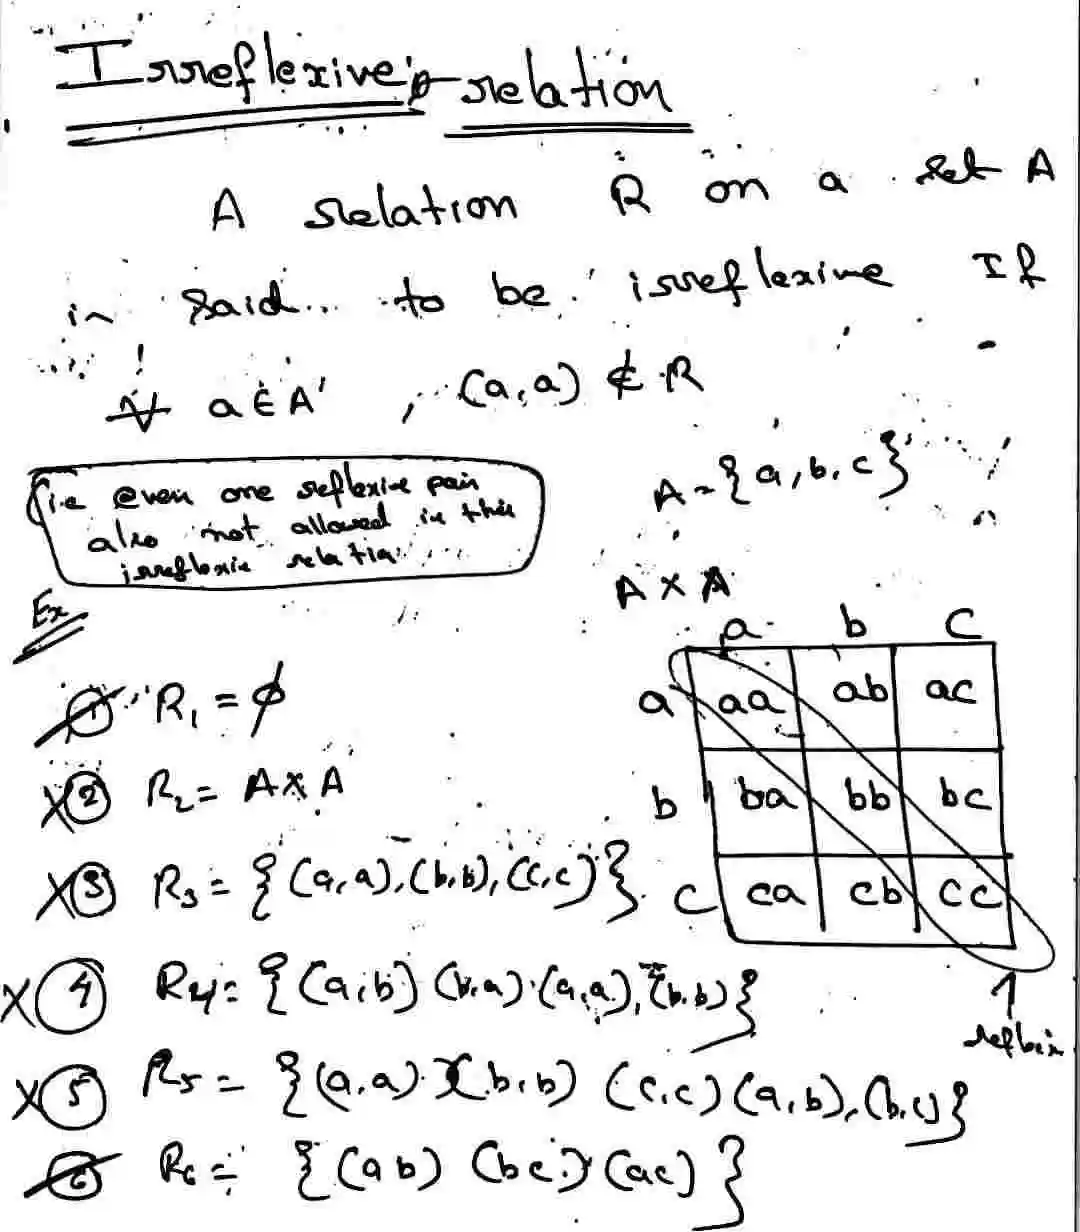 Irreflexive relation
A relation R on a set A
is said to be irreflexive If
∀ a∈A , (a,a) ∉ R
i.e even one reflexive pair
also not allowed in this
irreflexive relation
A = {a,b,c}
A X A
a b c
a aa ab ac
b ba bb bc
c ca cb cc
reflexive
Ex
① R₁ = ϕ
X② R₂ = A X A
X③ R₃ = {(a,a),(b,b),(c,c)}
X④ R₄ = {(a,b) (b,a) (a,a), (b,b)}
X⑤ R₅ = {(a,a) (b,b) (c,c) (a,b), (b,c)}
⑥ R₆ = {(ab) (bc) (ac)}